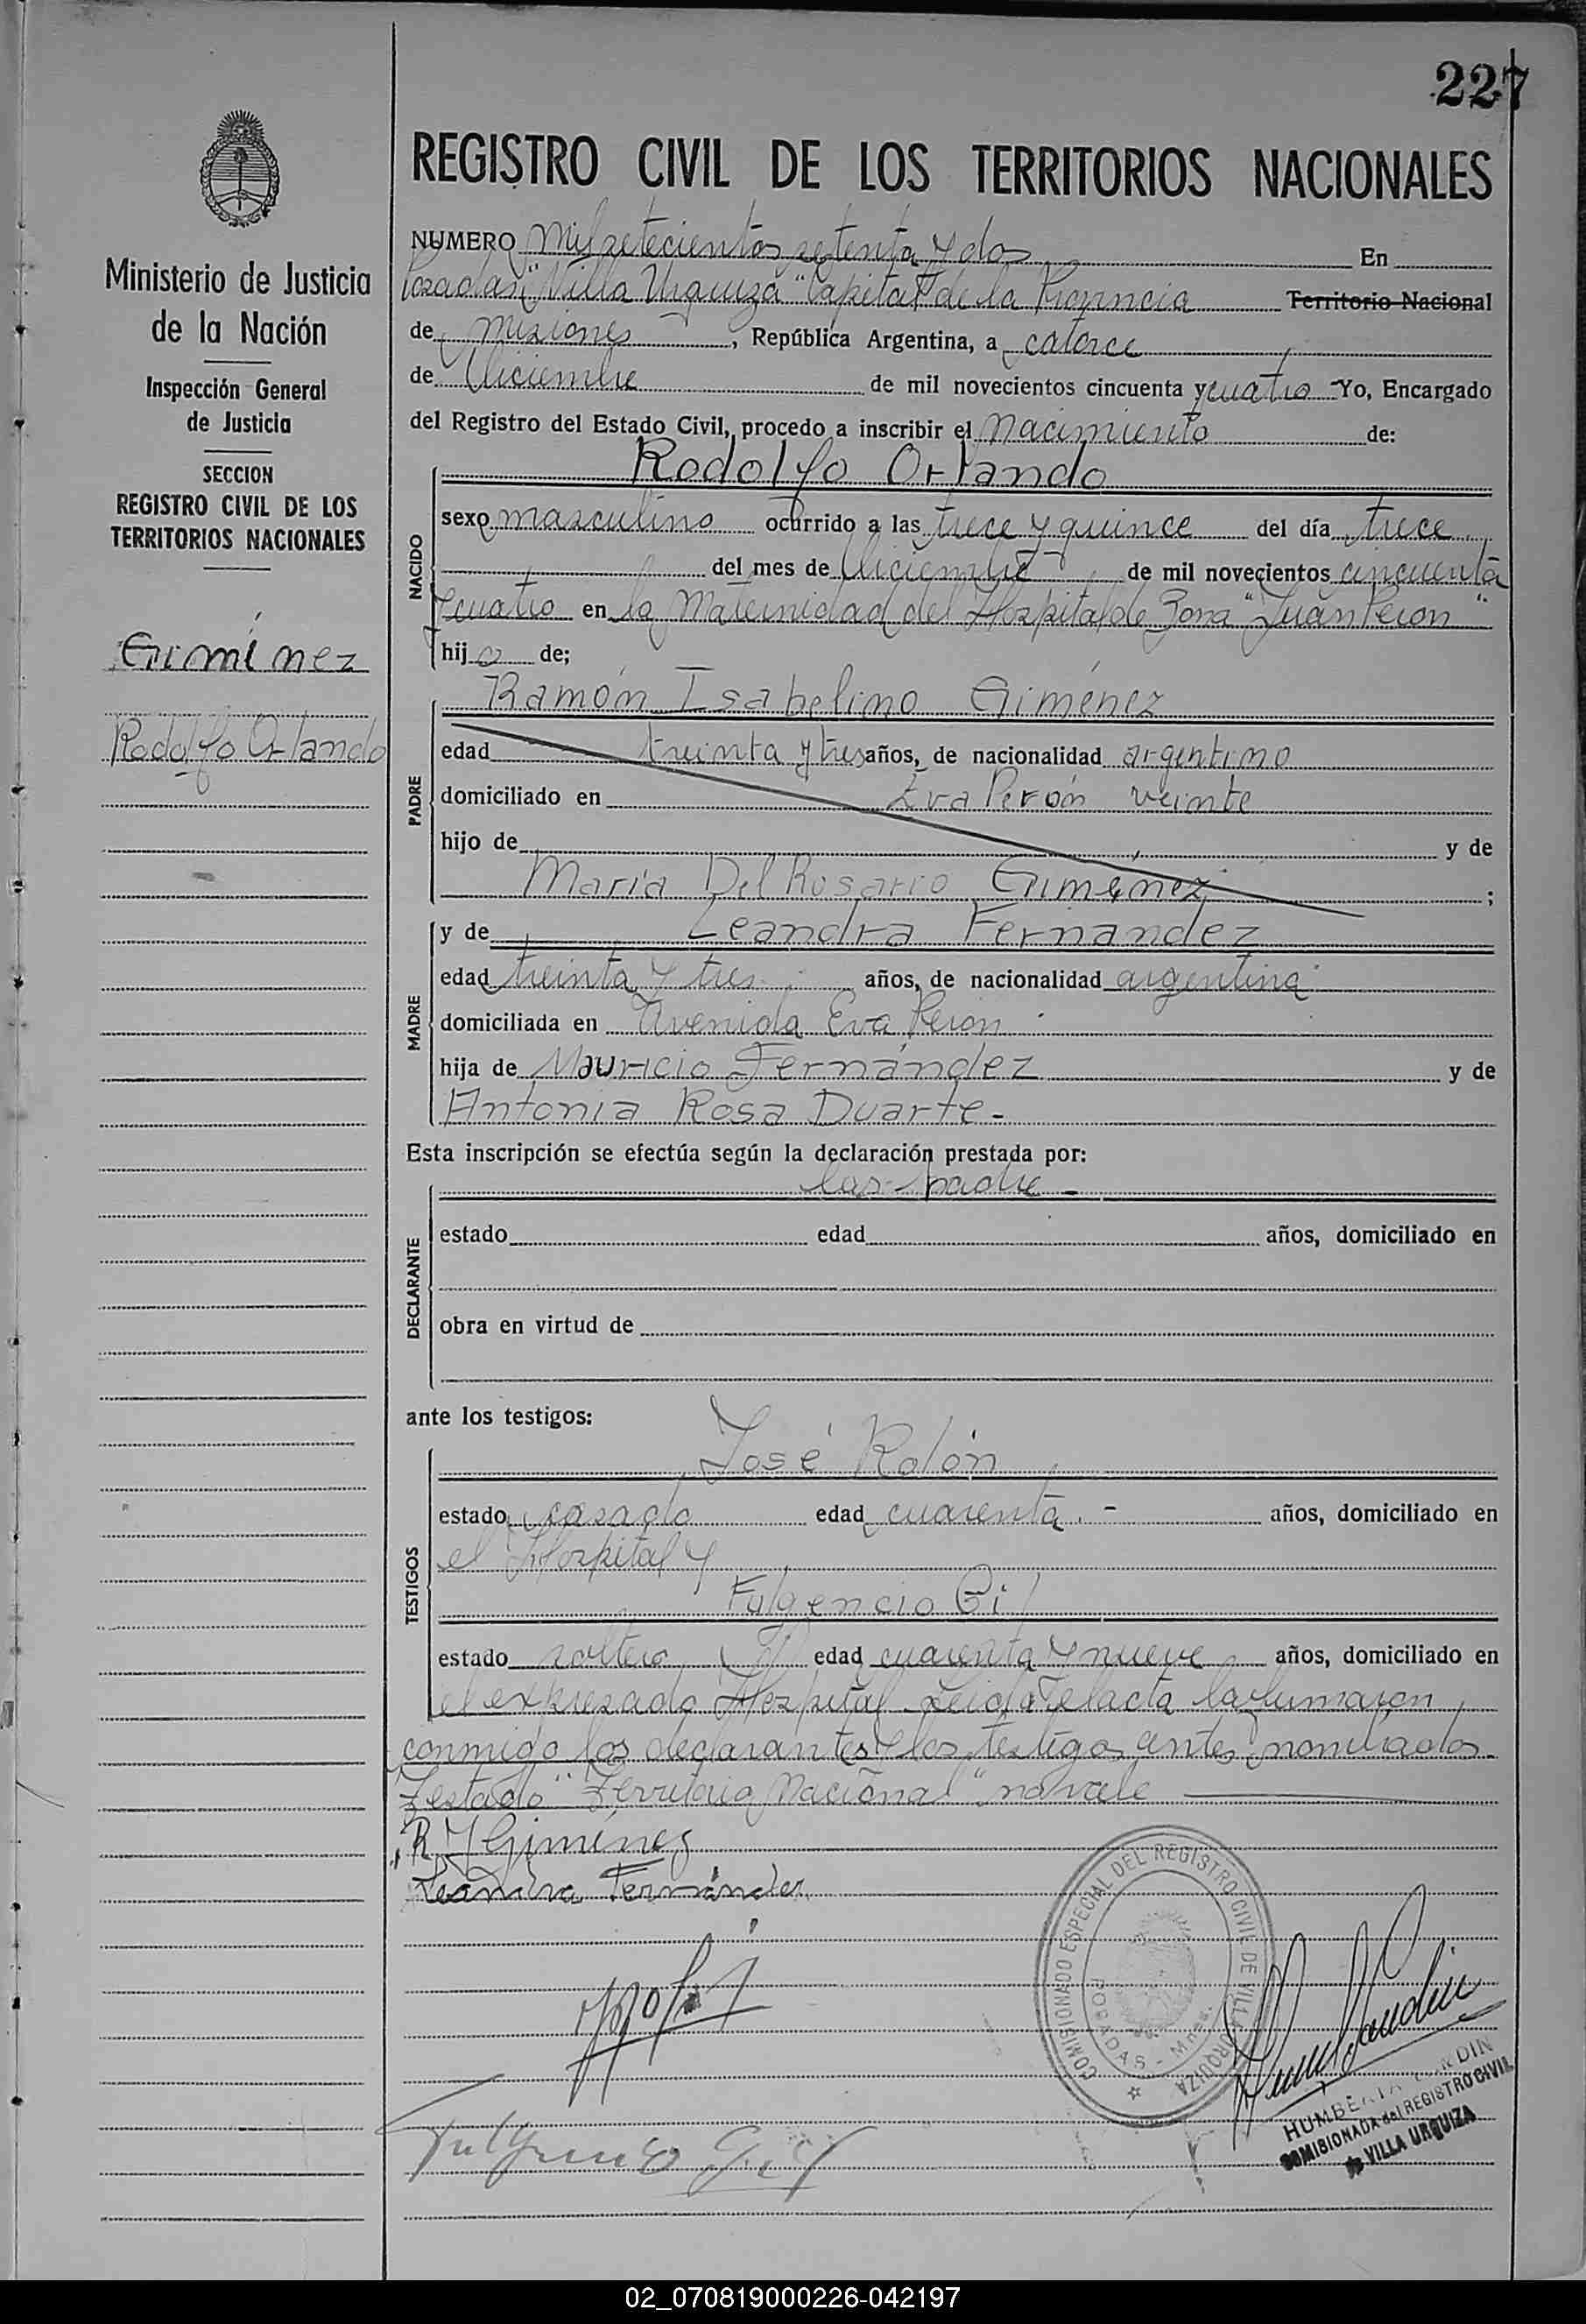 227
REGISTRO CIVIL DE LOS TERRITORIOS NACIONALES
Ministerio de Justicia
de la Nación
Inspección General
de Justicia
SECCION
REGISTRO CIVIL DE LOS
TERRITORIOS NACIONALES
Giménez
Rodolfo Orlando
NUMERO Mil setecientos setenta y dos En
Posadas "Villa Urquiza" Capital de la Provincia Territorio Nacional
de Misiones, República Argentina, a catorce
de Diciembre de mil novecientos cincuenta y cuatro Yo, Encargado
del Registro del Estado Civil, procedo a inscribir el Nacimiento de:
Rodolfo Orlando
NACIDO
sexo masculino ocurrido a las trece y quince del día trece
del mes de Diciembre de mil novecientos cincuenta
y cuatro en la Maternidad del Hospital de Zona "Juan Peron"
hijo de;
Ramón Isabelino Giménez
PADRE
edad treinta y tres años, de nacionalidad argentino
domiciliado en Eva Perón veinte
hijo de y de
Maria Del Rosario Giménez ;
MADRE
y de Leandra Fernandez
edad treinta y tres años, de nacionalidad argentina
domiciliada en Avenida Eva Peron
hija de Mauricio Fernández y de
Antonia Rosa Duarte-
Esta inscripción se efectúa según la declaración prestada por:
los padre -
DECLARANTE
estado edad años, domiciliado en
obra en virtud de
ante los testigos:
José Rolón
TESTIGOS
estado casado edad cuarenta. - años, domiciliado en
el Hospital y
Fulgencio Gil
estado soltero edad cuarenta y nueve años, domiciliado en
el expresado Hospital. Leida el acta la firmaron
conmigo los declarantes y los testigos antes nombrados.
Testado "Territorio Nacional" no vale
R I Giménez
Leandra Fernández
COMISIONADO ESPECIAL DEL REGISTRO CIVIL DE VILLA URQUIZA
POSADAS - Mnes.
Fulgencio Gil
COMISIONADA del REGISTRO CIVIL
de VILLA URQUIZA
02_070819000226-042197